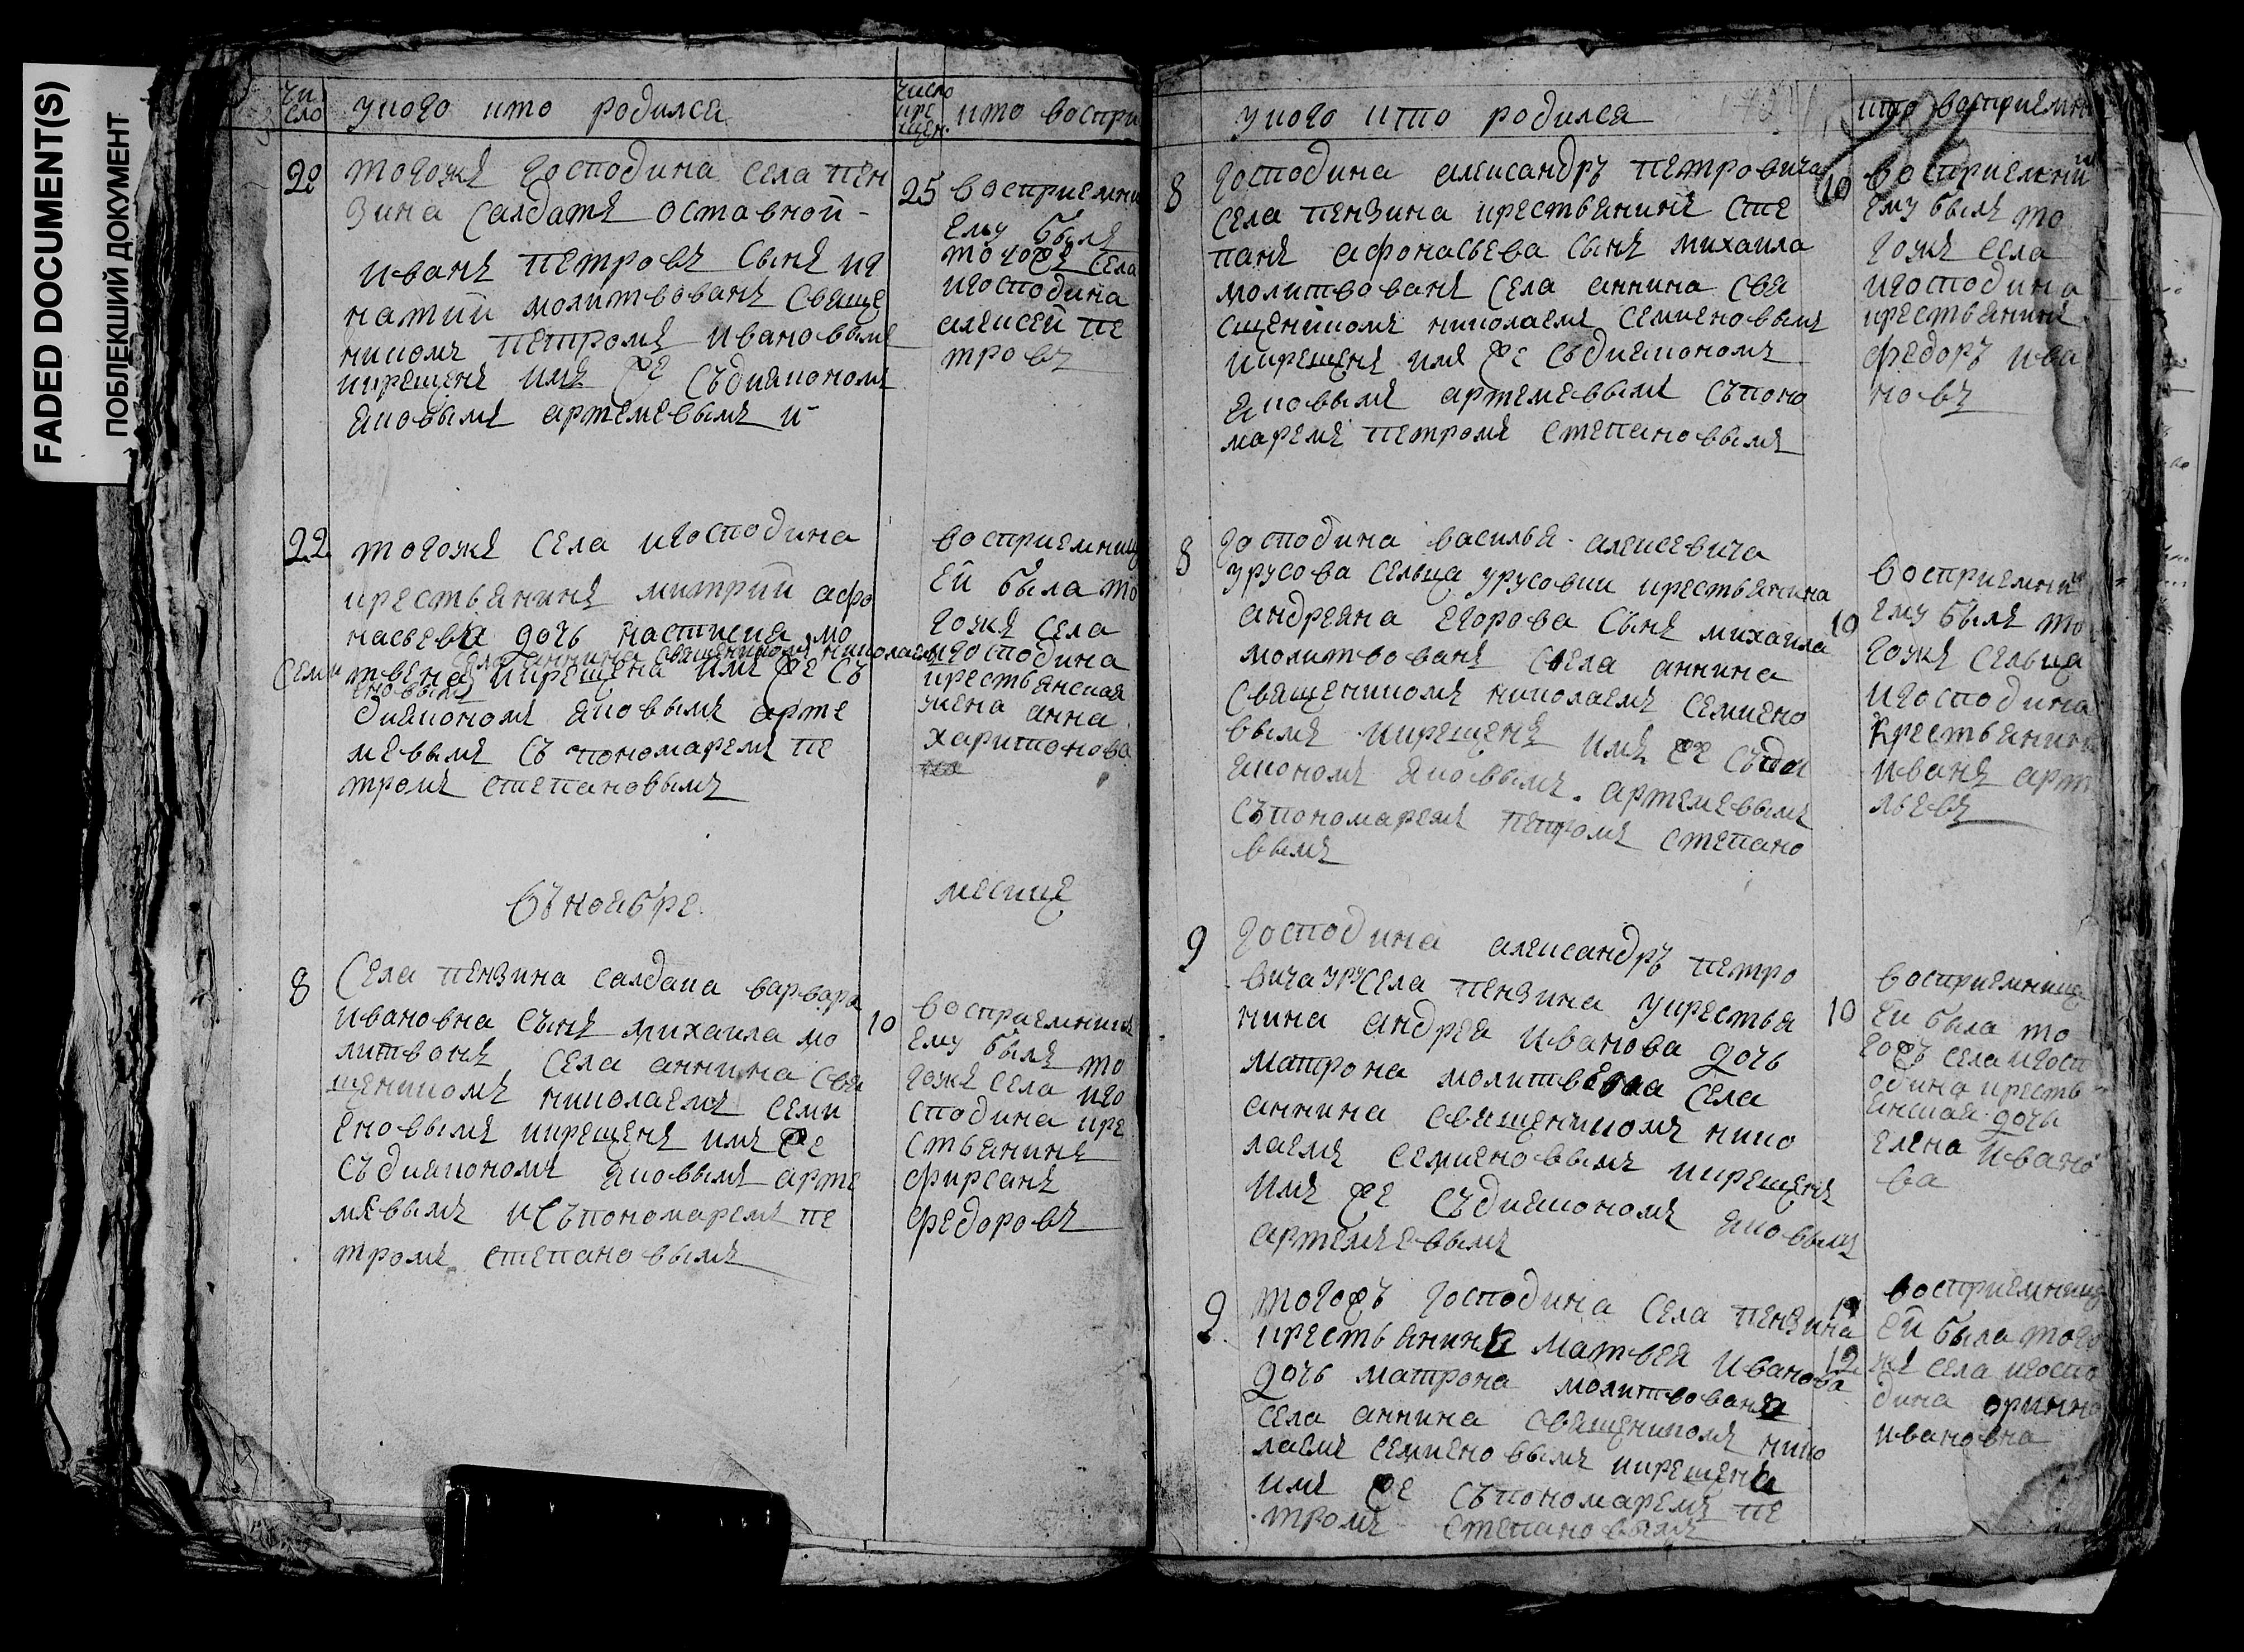 FADED DOCUMENT(S)
ПОБЛЕКШИЙ ДОКУМЕНТ
чи
сло
укого кто родился
число
кре
щен.
кто воспри
20
тогожъ господина села пен
зина салдатъ оставной
иванъ петровъ сынъ иг
натий молитвованъ свяще
никомъ петромъ ивановымъ
икрещенъ имъ же съдиякономъ
яковымъ артемевымъ и
25
восприемни
ему былъ
тогожъ села
игосподина
алексей пе
тровъ
22
тогожъ села игосподина
крестьянинъ митрий афо
насьева дочь настисиа мо
села аннина священникомъ николаемъ
семи
твена икрещена имъ же съ
еновымъ
дияконом яковымъ арте
мевымъ съ пономаремъ пе
тромъ степановымъ
восприемниц
ей была то
гожъ села
игосподина
крестьянская
жена анна
харитонова
въ ноябре
месице
8
села пензина салдака варвара
ивановна сынъ михаила мо
литвонъ села аннина свя
щенникомъ николаемъ семи
еновымъ икрещенъ имъ же
съдияконом яковымъ арте
мевымъ исъпономаремъ пе
тромъ степановымъ
10
восприемникъ
ему былъ то
гожъ села иго
сподина кре
стьянинъ
фирсанъ
федоровъ
укого кто родился
кто восприемни
8
господина александръ петровича
села пензина крестьянинъ сте
панъ афонасьева сынъ михаила
молитвованъ села аннина свя
сщенникомъ николаемъ семиеновымъ
икрещенъ имъ же съдияконом
яковымъ артемевымъ съпоно
маремъ петромъ степановымъ
10
восприемни
ему былъ то
гожъ села
игосподина
крестьянинъ
федоръ ива
новъ
8
господина василья алексевича
урусова сельца урусовки крестьянина
андреяна егорова сынъ михаила
молитвованъ села аннина
священникомъ николаемъ семиено
вымъ икрещенъ имъ же съди
якономъ яковымъ артемевымъ
съпономаремъ петромъ степано
вымъ
10
восприемни
ему былъ то
гожъ сельца
игосподина
крестьянинъ
иванъ арт
льевъ
9
господина александръ петро
вича уру села пензина укрестья
нина андрея иванова дочь
матрона молитвена села
аннина священникомъ нико
лаемъ семиеновымъ икрещенъ
имъ же съдияконом яковымъ
артемъевымъ
10
восприемница
ей была то
гожъ села игосп
одина кресть
янская дочь
елена ивано
ва
9
тогожъ господина села пензина
крестьянина матвея иванова
дочь матрона молитвована
села аннина священникомъ нико
лаемъ семиеновымъ икрещена
имъ же съпономаремъ пе
тромъ степановымъ
12
восприемница
ей была того
жъ села игоспо
дина орина
ивановна